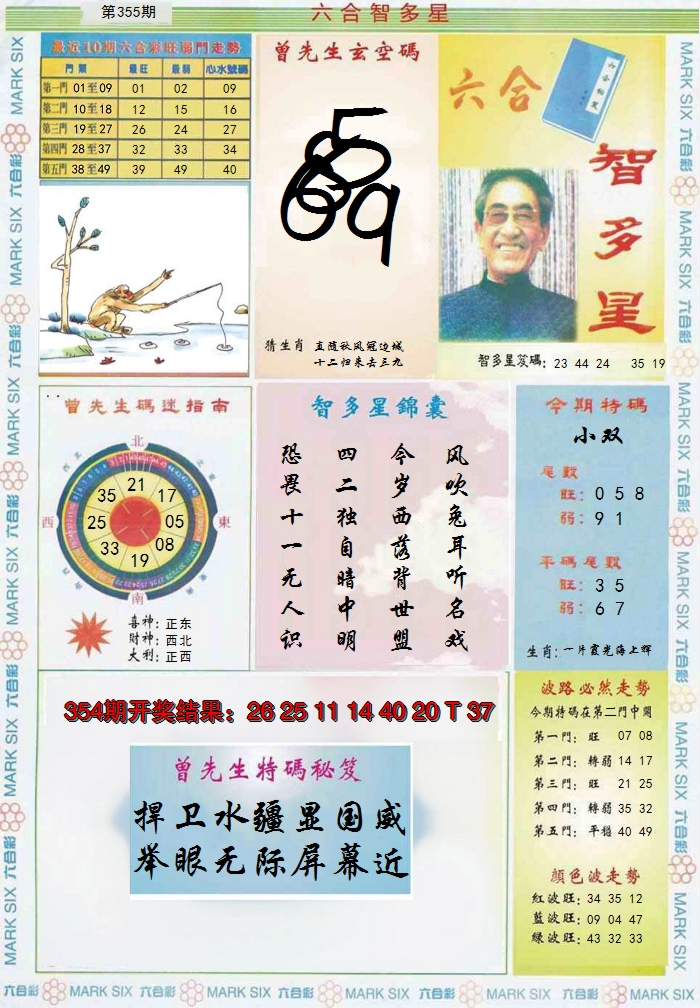 第355期
六合智多星
最近10期六合彩旺弱門走勢
門類 最旺 最弱 心水號碼
第一門 01至09 01 02 09
第二門 10至18 12 15 16
第三門 19至27 26 24 27
第四門 28至37 32 33 34
第五門 38至49 39 49 40
曾先生玄空碼
猜生肖 直随秋风冠边城
十二归来去三九
六合
智多星
智多星笈碼: 23 44 24 35 19
曾先生碼迷指南
北
西
東
南
21
17
05
08
19
33
25
35
喜神: 正东
財神: 西北
大利: 正西
智多星錦囊
风吹兔耳听名戏
今岁西落背世盟
四二独自暗中明
恐畏十一无人识
今期特碼
小双
尾數
旺: 0 5 8
弱: 9 1
平碼尾數
旺: 3 5
弱: 6 7
生肖: 一片霞光海上辉
354期开奖结果: 26 25 11 14 40 20 T 37
曾先生特碼秘笈
捍卫水疆显国威
举眼无际屏幕近
波路必然走勢
今期特碼在第二門中開
第一門: 旺 07 08
第二門: 轉弱 14 17
第三門: 旺 21 25
第四門: 轉弱 35 32
第五門: 平穩 40 49
顏色波走勢
紅波旺: 34 35 12
藍波旺: 09 04 47
綠波旺: 43 32 33
六合彩 MARK SIX 六合彩 MARK SIX 六合彩 MARK SIX 六合彩 MARK SIX 六合彩 MARK SIX